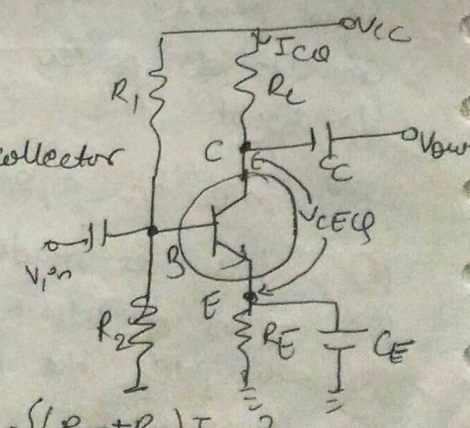 VCC
ICQ
R1
RC
Collector
C
CC
Vout
VCEQ
B
Vin
E
R2
RE
CE